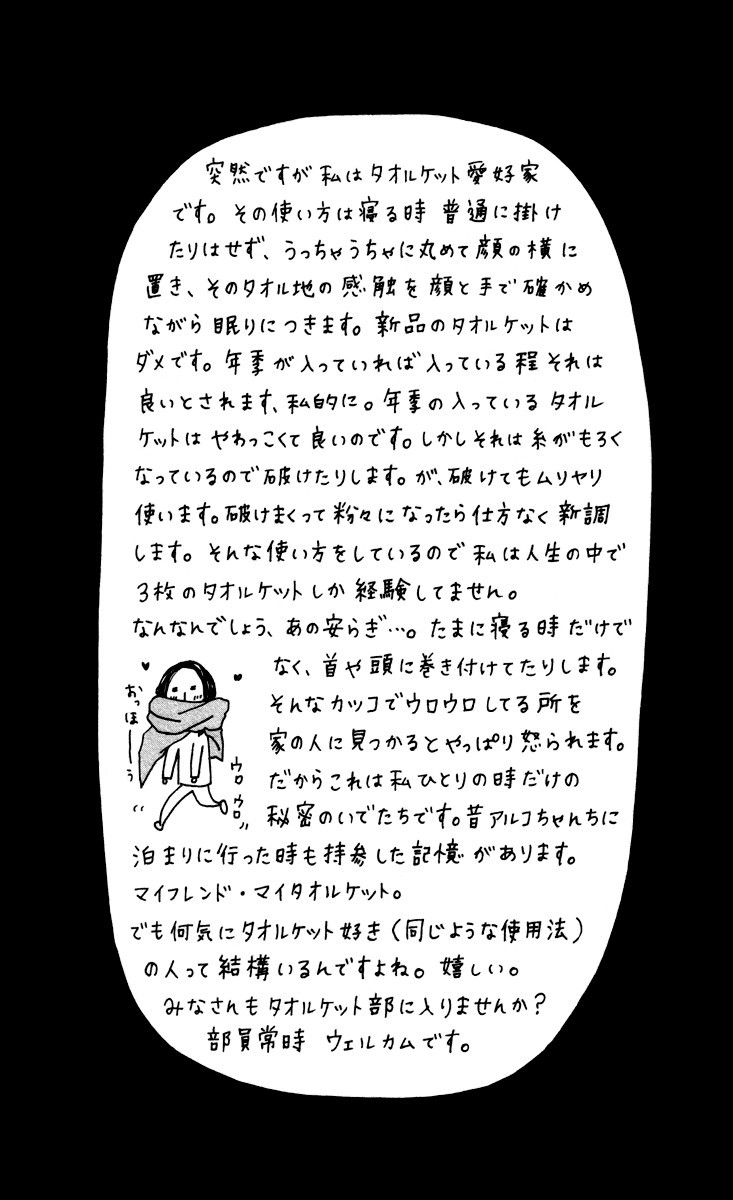 突然ですが私はタオルケット愛好家
です。その使い方は寝る時 普通に掛け
たりはせず、うっちゃうちゃに丸めて顔の横に
置き、そのタオル地の感触を顔と手で確かめ
ながら眠りにつきます。新品のタオルケットは
ダメです。年季が入っていれば入っている程それは
良いとされます、私的に。年季の入っているタオル
ケットはやわっこくて良いのです。しかしそれは糸がもろく
なっているので破けたりします。が、破けてもムリヤリ
使います。破けまくって粉々になったら仕方なく新調
します。そんな使い方をしているので私は人生の中で
3枚のタオルケットしか経験してません。
なんなんでしょう、あの安らぎ…。たまに寝る時だけで
なく、首や頭に巻き付けてたりします。
そんなカッコでウロウロしてる所を
家の人に見つかるとやっぱり怒られます。
だからこれは私ひとりの時だけの
秘密のいでたちです。昔アルコちゃんちに
泊まりに行った時も持参した記憶があります。
マイフレンド・マイタオルケット。
でも何気にタオルケット好き(同じような使用法)
の人って結構いるんですよね。嬉しい。
みなさんもタオルケット部に入りませんか?
部員常時 ウェルカムです。
おっほーう
ウロ
ウロ